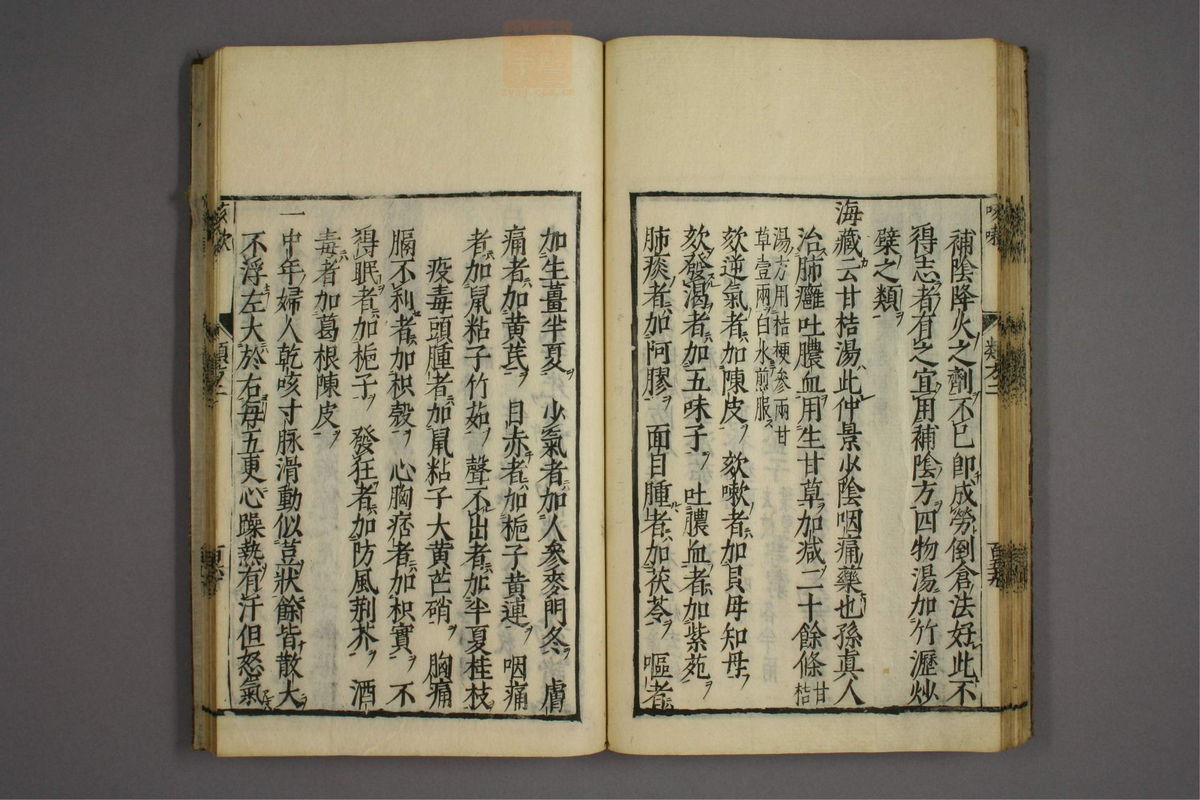 補陰降火之劑不已即成勞倒倉法好此不
得志者有之宜用補陰方四物湯加竹瀝炒
檗之類
海藏云甘桔湯此仲景少陰咽痛藥也孫眞人
治肺癰吐膿血用生甘草加减二十餘條甘桔
湯方用桔梗參兩甘
草壹兩白水煎服
欬逆氣者加陳皮 欬嗽者加貝母知母
欬發渴者加五味子 吐膿血者加紫苑
肺痰者加阿膠 面目腫者加茯苓 嘔者
加生薑半夏 少氣者加人參麥門冬 膚
痛者加黄芪 目赤者加梔子黄連 咽痛
者加鼠粘子竹茹 聲不出者加半夏桂枝
疫毒頭腫者加鼠粘子大黄芒硝 胸痛
膈不利者加枳殼 心胸痞者加枳實 不
得眠者加梔子 發狂者加防風荆芥 酒
毒者加葛根陳皮
一中年婦人乾咳寸脉滑動似豆狀餘皆散大
不浮左大於右每五更心躁熱有汗但怒氣